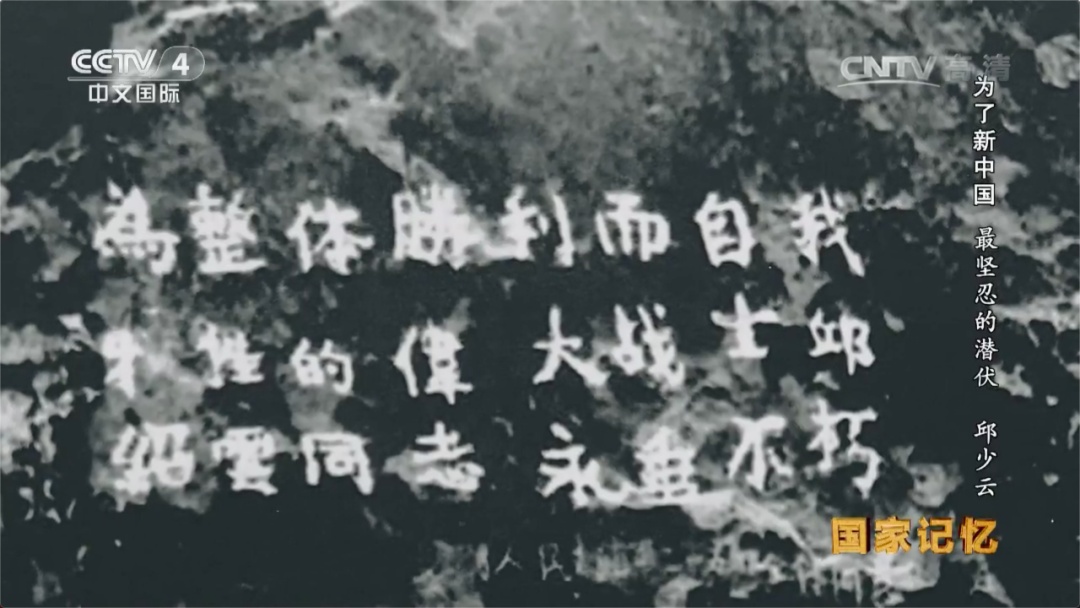 CCTV 4
中文国际
CNTV 高清
为了新中国 最坚忍的潜伏 邱少云
為整体勝利而自我
牲的偉大战士邱
紹雲同志永垂不朽
国家记忆